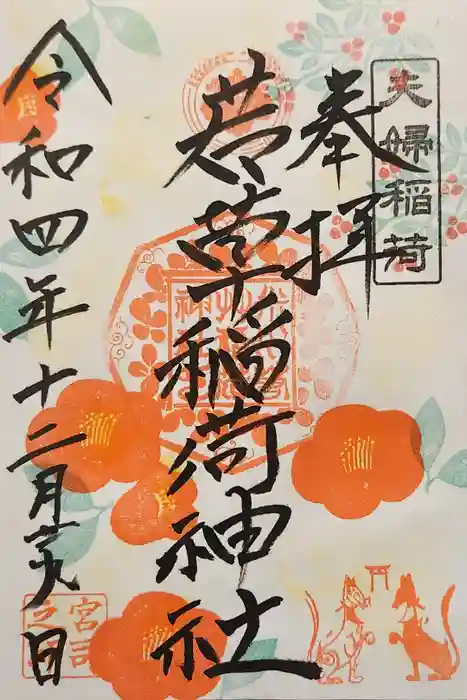 夫婦稲荷
奉拝
若草稲荷神社
令和四年十二月 日
宮司之印